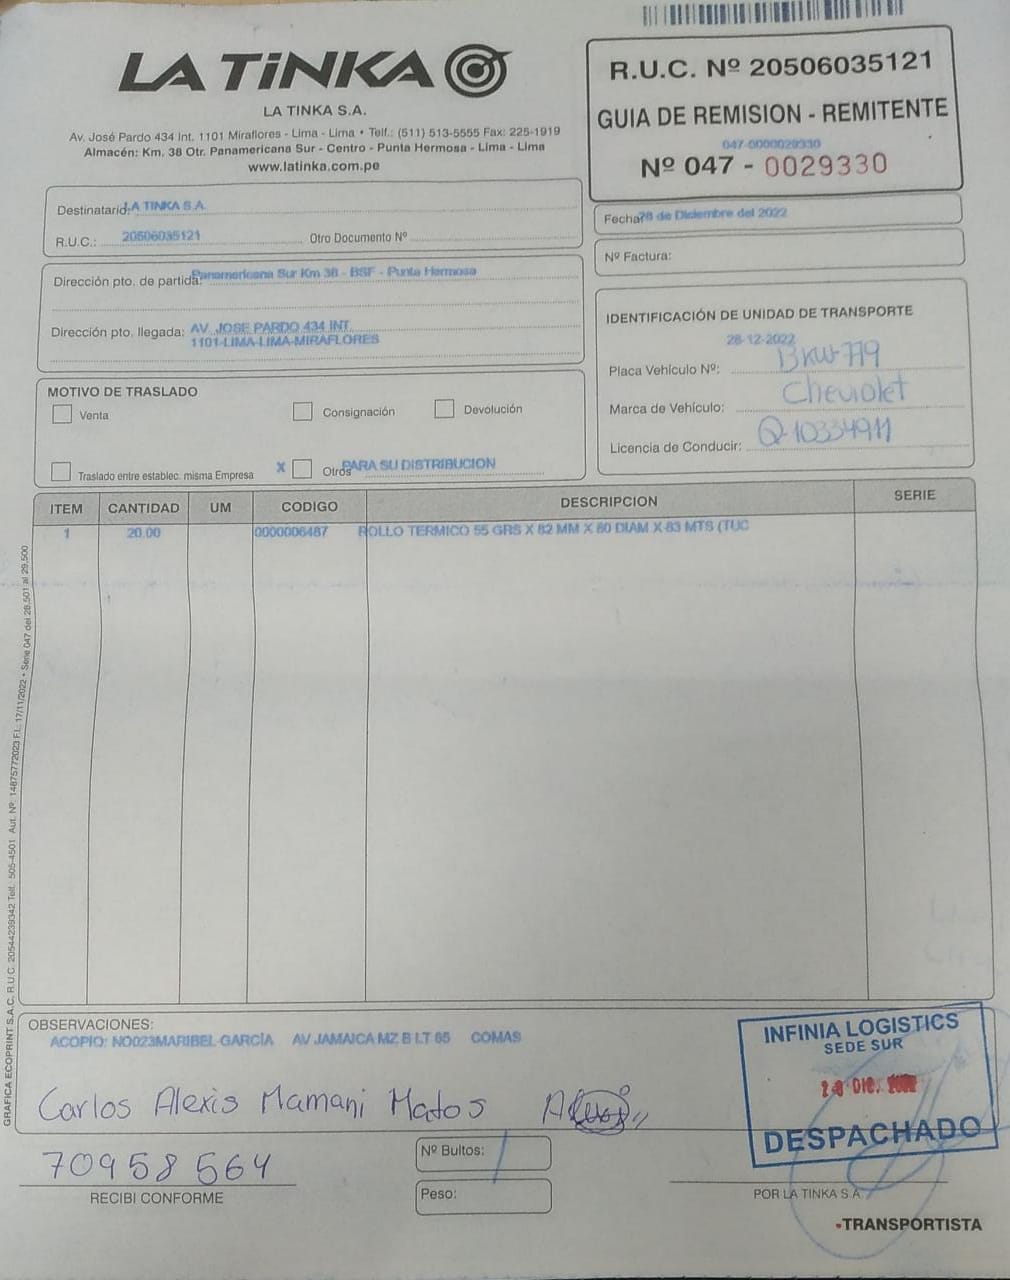 LA TiNKA
LA TINKA S.A.
Av. José Pardo 434 Int. 1101 Miraflores - Lima - Lima • Telf.: (511) 513-5555 Fax: 225-1919
Almacén: Km. 38 Otr. Panamericana Sur - Centro - Punta Hermosa - Lima - Lima
www.latinka.com.pe
R.U.C. Nº 20506035121
GUIA DE REMISION - REMITENTE
047-0000029330
Nº 047 - 0029330
Destinatario: LA TINKA S.A.
R.U.C.: 20506035121 Otro Documento Nº
Fecha: 28 de Diciembre del 2022
Nº Factura:
Dirección pto. de partida: Panamericana Sur Km 38 - BSF - Punta Hermosa
Dirección pto. llegada: AV. JOSE PARDO 434 INT.
1101-LIMA-LIMA-MIRAFLORES
IDENTIFICACIÓN DE UNIDAD DE TRANSPORTE
28-12-2022
Placa Vehículo Nº: BKW-779
Marca de Vehículo: Chevrolet
Licencia de Conducir: Q-10334911
MOTIVO DE TRASLADO
Venta
Consignación
Devolución
Traslado entre establec. misma Empresa
X Otros PARA SU DISTRIBUCION
ITEM CANTIDAD UM CODIGO DESCRIPCION SERIE
1 20.00 0000006487 ROLLO TERMICO 55 GRS X 82 MM X 80 DIAM X 83 MTS (TUC
GRAFICA ECOPRINT S.A.C. R.U.C. 20544239342 Telf. 505-4501 Aut. Nº. 14875772023 F.I.: 17/11/2022 • Serie 047 del 28,501 al 29,500
OBSERVACIONES:
ACOPIO: NO023MARIBEL GARCÍA AV JAMAICA MZ B LT 65 COMAS
Carlos Alexis Mamani Matos
70958564
RECIBI CONFORME
Nº Bultos: 1
Peso:
INFINIA LOGISTICS
SEDE SUR
28 DIC. 2022
DESPACHADO
POR LA TINKA S.A.
•TRANSPORTISTA